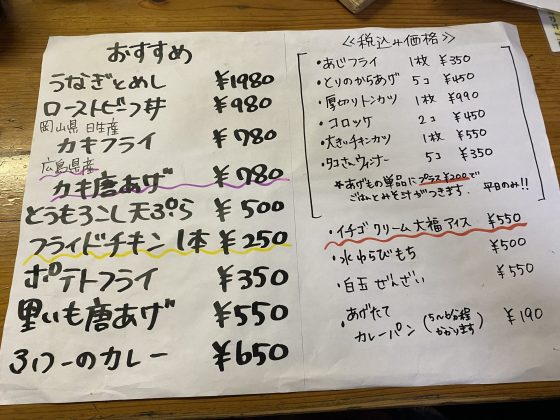 おすすめ
うなぎとめし ¥1980
ローストビーフ丼 ¥980
岡山県 日生産
カキフライ ¥780
広島県産
カキ唐あげ ¥780
とうもろこし天ぷら ¥500
フライドチキン 1本 ¥250
ポテトフライ ¥350
里いも唐あげ ¥550
のカレー ¥650
≪税込み価格≫
・あじフライ 1枚 ¥350
・とりのからあげ 5コ ¥450
・厚切りトンカツ 1枚 ¥990
・コロッケ 2コ ¥450
・大きいチキンカツ 1枚 ¥550
・タコさんウィンナー 5コ ¥350
*あげもの単品にプラス¥200で
ごはんとみそ汁がつきます。平日のみ!!
・イチゴクリーム大福アイス ¥550
・水わらびもち ¥500
・白玉ぜんざい ¥550
・あげたて
カレーパン (5〜6分程 かかります) ¥190